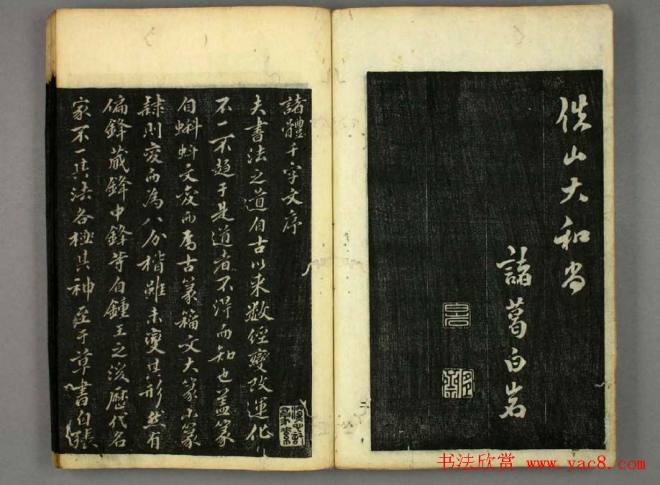 佚山大和尚
諸葛白岩
諸體千字文序
夫書法之道自古以来數經變改運化
不一不趋于是道者不得而知也盖篆
自蝌蚪文变而為古篆籀文大篆小篆
隸則变而為八分楷雖未變其形然有
偏鋒藏鋒中鋒等自鍾王之後歷代名
家不一其法各極其神至于草書自
书法欣赏 www.yac8.com